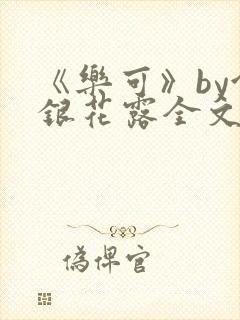 《樂可》by
銀花露全文
偽俾官